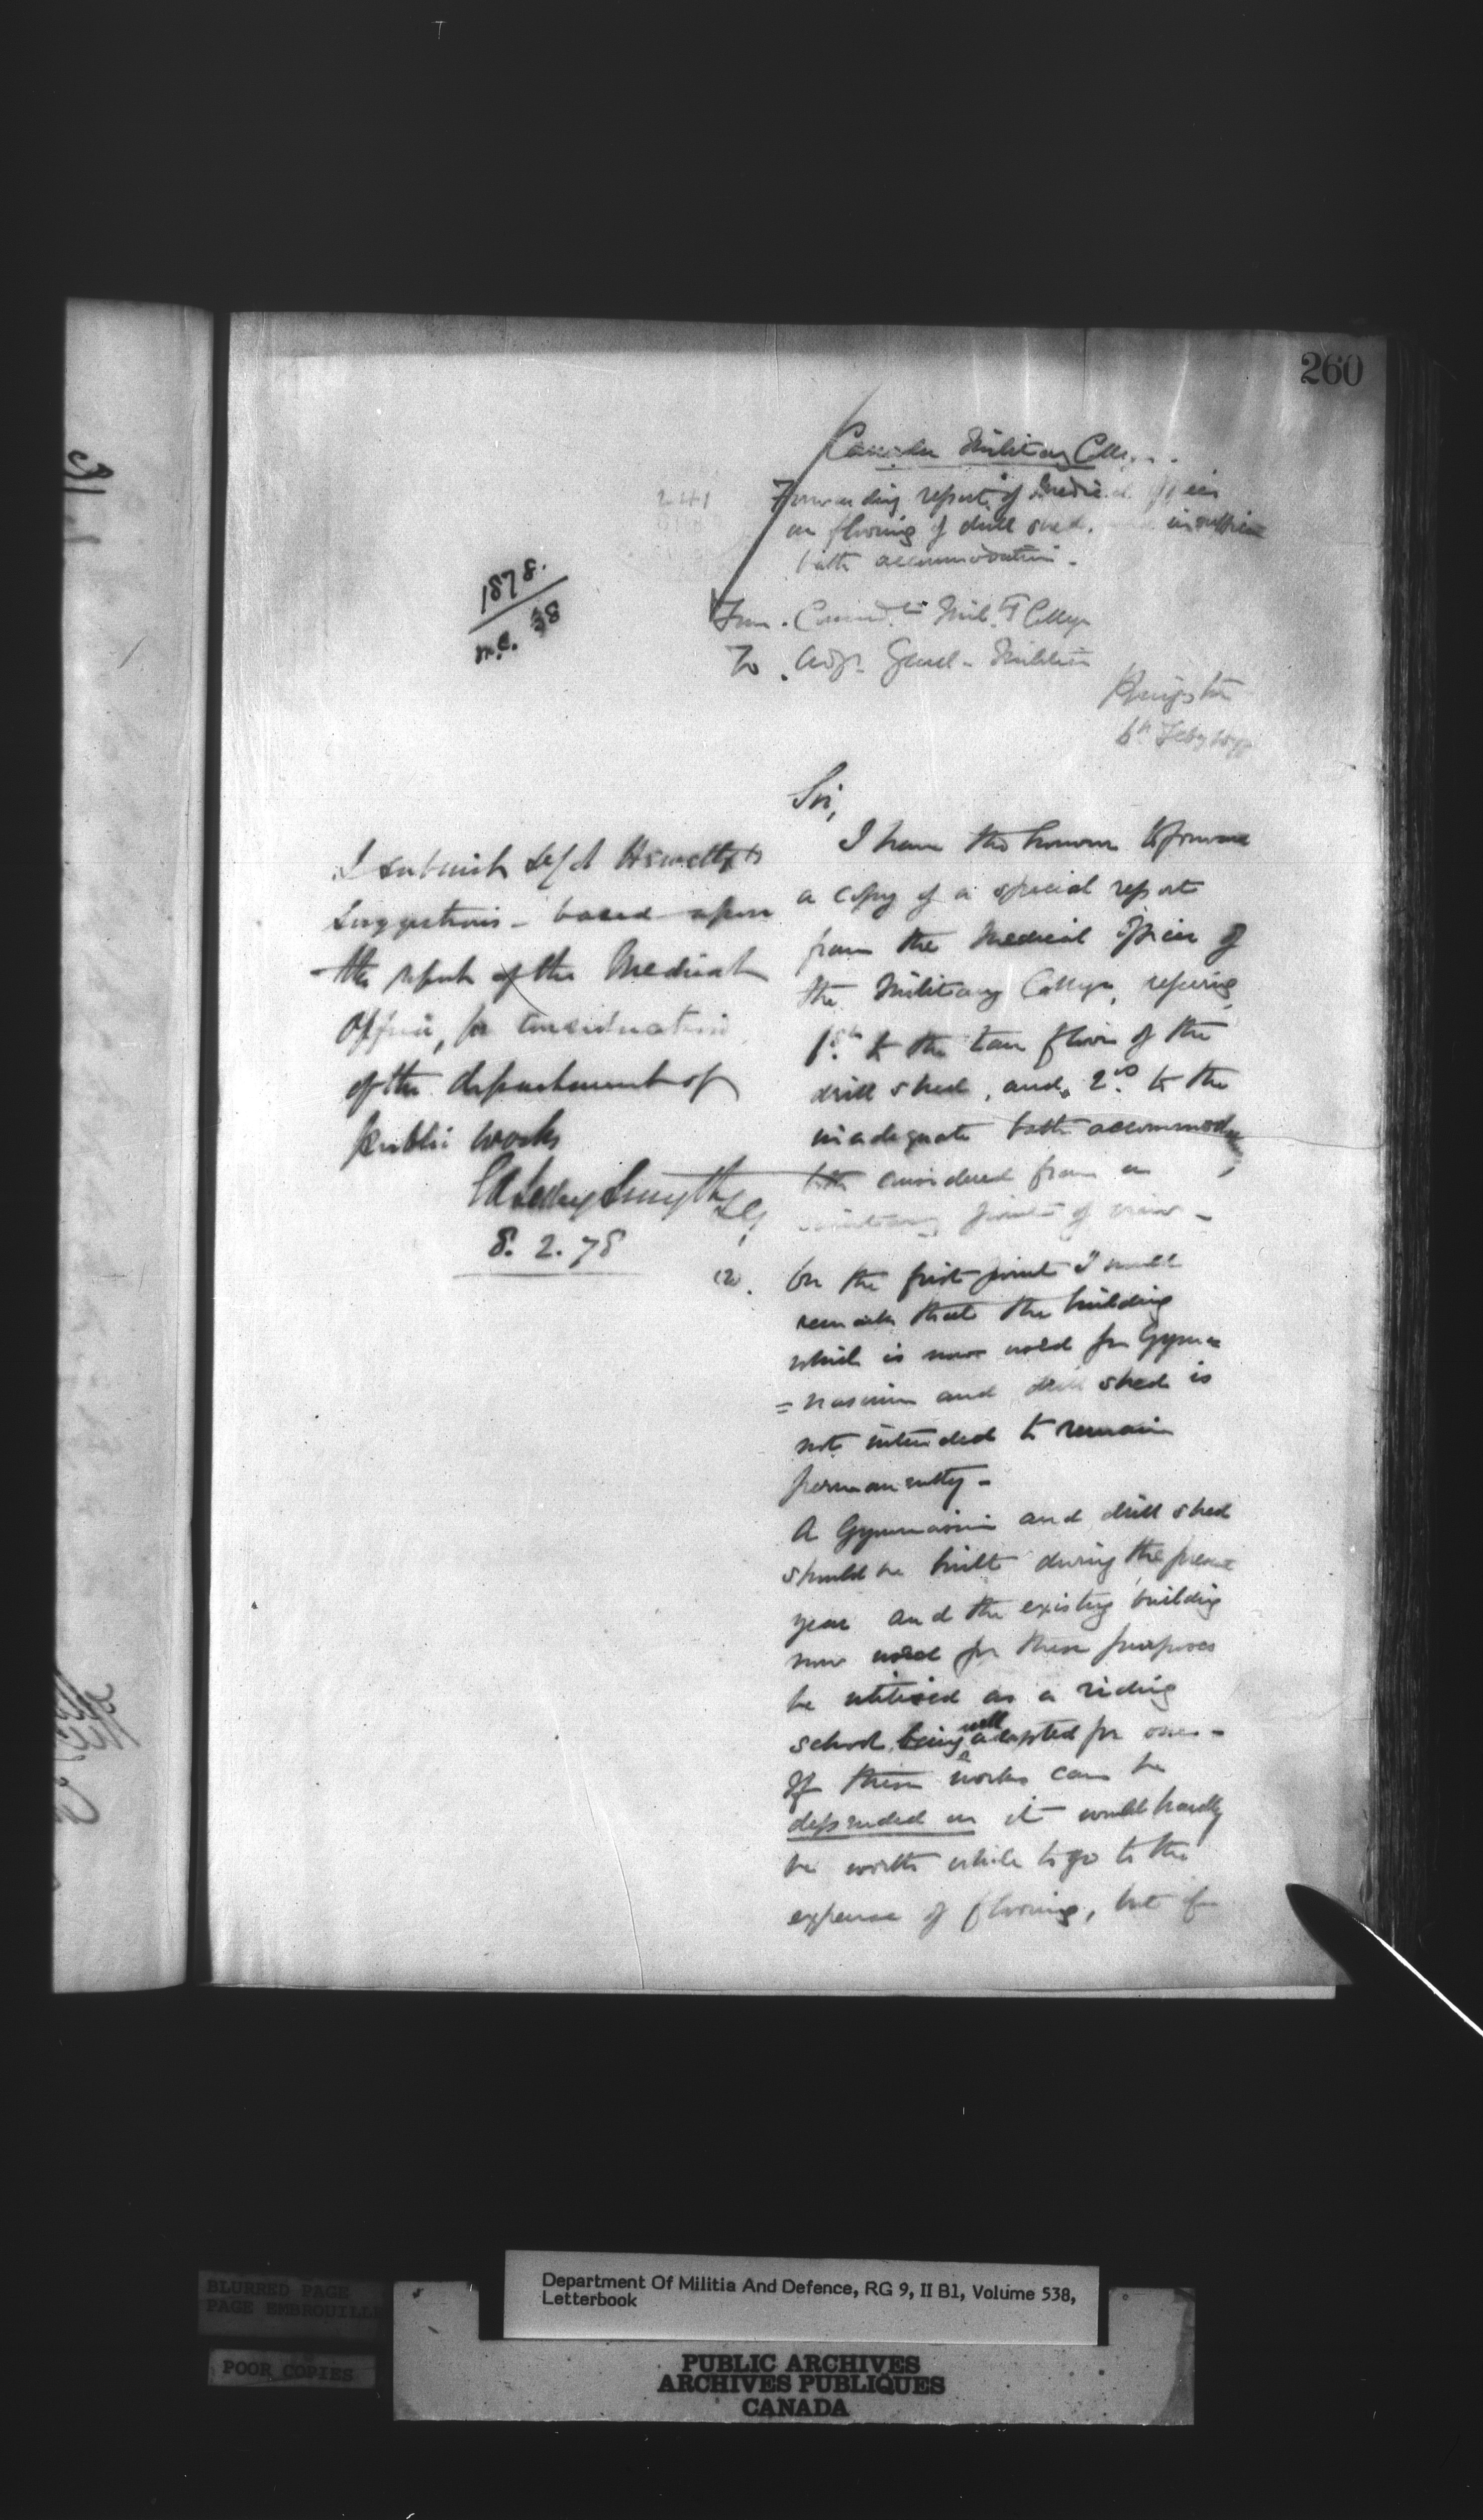 260
Canada Military College
Forwarding report of Medical Officer
on flooring of drill shed. and insufficient
bath accommodation -
241
1878.
m.C. 38
From . Commdt. Mil.y College
To . Adjt. Genl - Militia
Kingston
6th Feby
Sir,
I have the honour to forward
a copy of a special report
from the Medical Officer of
the Military College, refering
1st. to the tan floor of the
drill shed, and, 2nd. to the
inadequate bath accommodation,
both considered from a
sanitary point of view -
(2) . On the first point I would
remark that the building
which is now used for Gym=
=nasium and drill shed is
not intended to remain
permanently -
A Gymnasium and drill shed
should be built during the present
year and the existing building
now used for these purposes
be utilised as a riding
school, being well adapted for one -
If these works can be
depended on it would hardly
be worth while to go to the
expense of flooring, but if
I submit Lt/Col Hewett's
suggestions - based upon
the report of the Medical
Officer, for consideration
of the department of
public works
E Selby Smyth LG
8. 2. 78
BLURRED PAGE
PAGE EMBROUILLE
POOR COPIES
Department Of Militia And Defence, RG 9, II B1, Volume 538,
Letterbook
PUBLIC ARCHIVES
ARCHIVES PUBLIQUES
CANADA